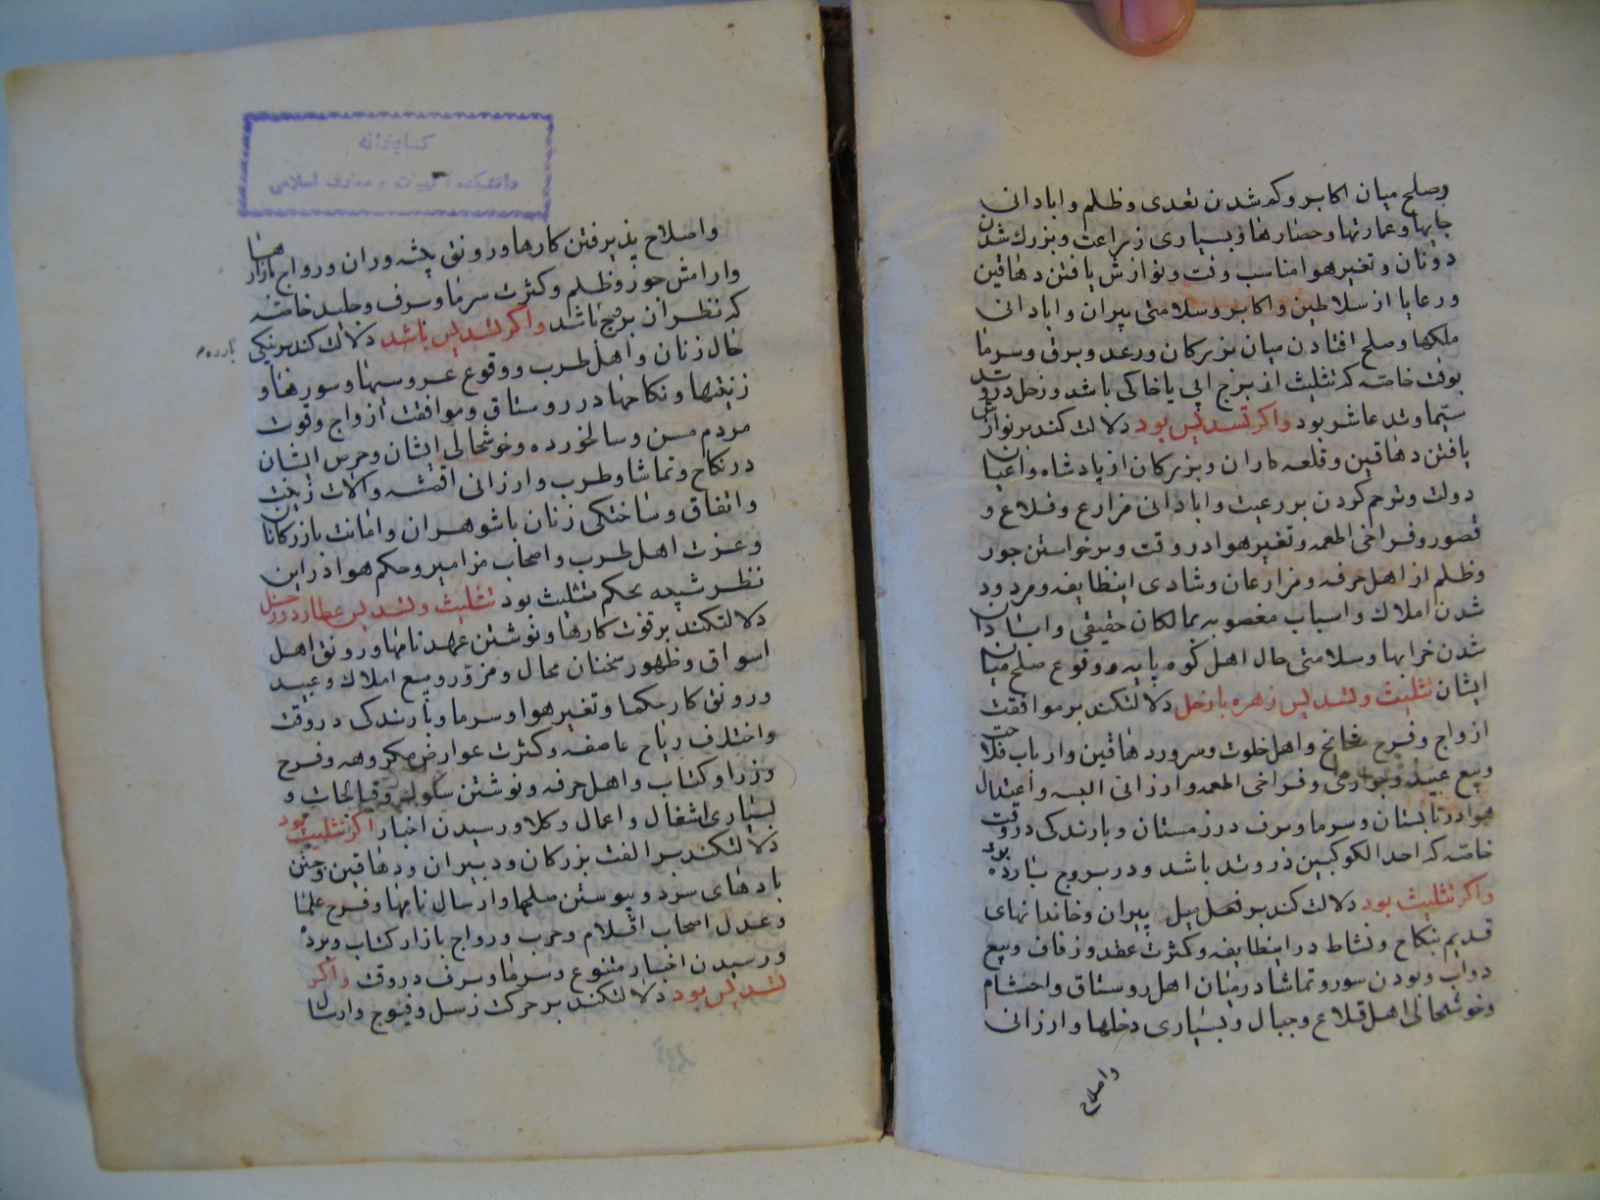 وصلح میان اکابر وکم شدن تعدی وظلم وابادانی
جایها وعمارتها وحصارها وبسیاری زراعت وبزرك شدن
دونان وتغیر هوا مناسب وقت ونوازش یافتن دهاقین
ورعایا از سلاطین واکابر وسلامتی پیران وابادانی
ملکها وصلح افتادن میان بزرکان ورعد وبرق وسرما
بوقت خاصه که تثلیث از برج ابی یا خاکی باشد وزحل در وتد
سیما وتد عاشر بود واکر تسدیس بود دلالت کند بر نوازش
یافتن دهاقین وقلعه داران وبزرکان از پادشاه واعیان
دولت وترحم کردن بر رعیت وابادانی مزارع وقلاع و
قصور وفراخی اطعمه وتغیر هوا در وقت وبرخواستن جور
وظلم از اهل حرفه ومزارعان وشادی اینطایفه ومردود
شدن املاك واسباب مغصوبه بمالکان حقیقی وابادان
شدن خرابها وسلامتی حال اهل کوه پایه ووقوع صلح میان
ایشان تثلیث وتسدیس زهره با زحل دلالتکند بر موافقت
ازواج وفرح مشایخ واهل خلوت وسرور دهاقین وارباب فلاحت
وبیع عبید وجواری وفراخی اطعمه وارزانی البسه واعتدال
هوا در تابستان وسرما وبرف در زمستان وبارندکی در وقت
خاصه که احد الکوکبین در وتد باشد ودر بروج بارده بود
واکر تثلیث بود دلالت کند بر فعل میل پیران وخاندانهای
قدیم بنکاح ونشاط در اینطایفه وکثرت عقد وزفاف وبیع
دواب وبودن سور وتماشا در میان اهل روستاق واحشام
وخوشحالی اهل قلاع وجبال وبسیاری دخلها وارزانی
واصلاح
کتابخانه
دانشکده الهیات و معارف اسلامی
واصلاح پذیرفتن کارها ورونق پیشه وران ورواج بازارها
وارامش جور وظلم وکثرت سرما وبرف وجلید خاصه
که نظر ان برج باشد واکر تسدیس باشد دلالت کند بر نیکی
بارده
حال زنان واهل طرب ووقوع عروسیها وسورها و
زینتها ونکاحها در روستاق وموافقت ازواج وقوت
مردم مسن وسالخورده وخوشحالی ایشان وحرص ایشان
در نکاح وتماشا وطرب وارزانی اقمشه والات زینت
واتفاق وساختکی زنان با شوهران وامانت بازرکانان
وعزت اهل طرب واصحاب مزامیر وحکم هوا در این
نظر شبیه بحکم تثلیث بود تثلیث وتسدیس عطارد وزحل
دلالتکند بر قوت کارها ونوشتن عهدنامها ورونق اهل
اسواق وظهور سخنان محال ومزور وبیع املاك وعبید
ورونق کار حکما وتغیر هوا وسرما وبارندکی در وقت
واختلاف ریاح عاصفه وکثرت عوارض مکروهه وفرح
وزرا وکتاب واهل حرفه ونوشتن سکوك وقبالجات و
بسیاری اشغال واعمال وکلا ورسیدن اخبار اکر تثلیث بود
دلالتکند بر الفت بزرکان ودبیران ودهاقین وجستن
بادهای سرد وپیوستن صلحها وارسال نامها وفرح علما
وعدل اصحاب اقلام وحرب ورواج بازار کتاب وبرده
ورسیدن اخبار متنوع وسرما وبرف در وقت واکر
تسدیس بود دلالتکند بر حرکت رسل وفیوج وارسال